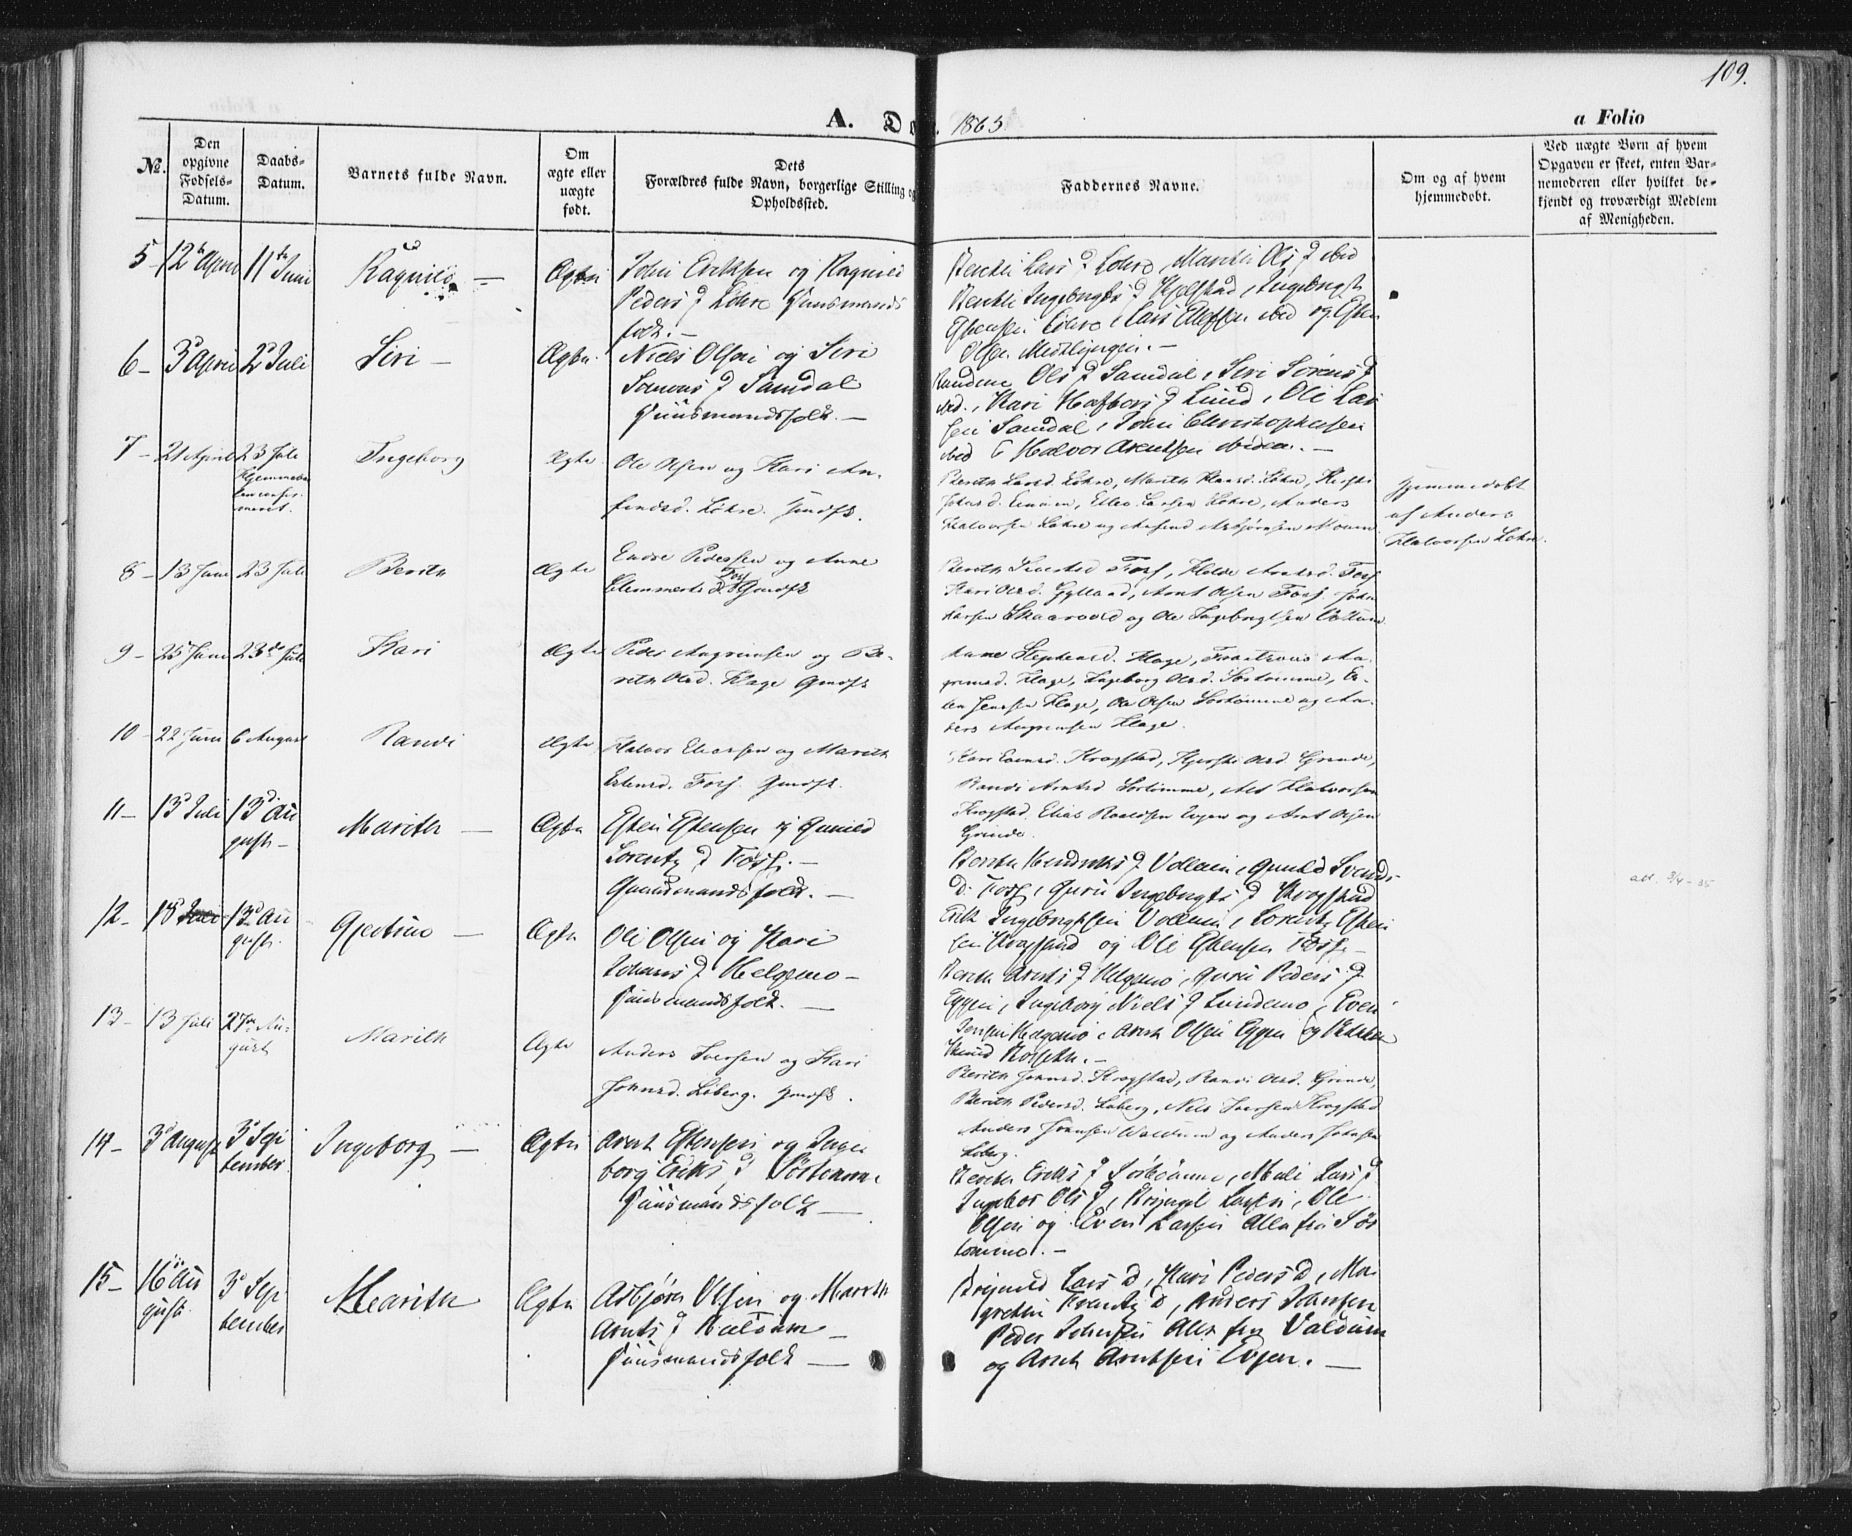 109.
A. Dø 1865 a Folio
No. Den opgivne Fødsels-Datum. Daabs-Datum. Barnets fulde Navn. Om ægte eller uægte født. Dets Forældres fulde Navn, borgerlige Stilling og Opholdssted. Faddernes Navne. Om og af hvem hjemmedøbt. Ved uægte Børn af hvem Opgaven er skeet, enten Barnemoderen eller hvilket bekjendt og troværdigt Medlem af Menigheden.
5 - 12 April 11te Juni Ragnild - Ægte John Eriksen og Ragnild
Peders D Löhre Huusmands
folk. -
Berethe Lars D Lohre, Marithe Ols D ibid
Berethe Ingebrigts D Kjelstad, Ingebrigt
Estensen Löhre, Lars Ellefsen ibid og Esten
Olsen Midtlyngen. -
6 - 3d April 2d Juli Siri - Ægte Niels Olsen og Siri
D Samdal
Huusmandsfolk. -
Randene Ols D Samdal, Siri Sörens D
ibd., Kari D Lund, Ole Lar
sen Samdal, John Christophersen
ibid & Halvor Arentsen ibidem. -
7 - 21 April 23 Juli
Hjemmedaa
ben confir
meret. Ingeborg Ægte Ole Olsen og Kari An
findsd. Löhre. Gmdfk.
Berith Larsd. Löhre, Marith Larsd. Löhre,
Johnsd. Ellev Larsen Löhre, Anders
Halvorsen Löhre og Asbjørnsen
Hjemmedøbt
af Anders
Halvorsen Løhre.
8 - 13 Juni 23 Juli Berith Ægte Endre Pedersen og Anne
Clemmets D. Fors Gmdfk
Berith Fors, Arntsd. Fors
Kari Olsd. Gylland, Arnt Olsen Fors, John
Larsen Skaarvold og Ole Ingebrigtsen
9 - 25 Juni 23de Juli Kari Ægte Peder Angrimsen og Be-
rith Olsd. Hage Gmdfk
Anne Stephensd. Hage, An-
grimsd. Hage, Ingeborg Olsd. Sortømme, Es-
ten Jensen Hage, Ole Olsen Sortømme og An-
ders Angrimsen Hage.
10 - 22 Juni 6 August Randi Ægte Halvor Eliasen og Marith
Estensd. Fors. Gmdfk.
Kari Evensd. Krogstad, Kjersti Olsd Grinde,
Randi Arntsd Sortømme, Halvorsen
Krogstad, Elias Roaldsen Evjen og Arnt Olsen
Grinde.
11 - 13d Juli 13d Au
gust - Marith - Ægte Esten Estensen og Gunild
Lorentz D Fors. -
Gaardmandsfolk. -
Berethe Hendriks D Vollan, Gunild Svends
D. Fors, Guru Ingebrigts D Krogstad
Erik Ingebrigtsen Vollan, Lorentz Esten
sen Krogstad og Ole Estensen Fors. -
12 - 18 13d Au
gust. Gjertrud - Ægte Ole Olsen og Kari
Johans D Helgemo -
Huusmandsfolk. -
Berethe Arnts D Helgemo, Guru Peders D
Eggen, Ingeborg Niels D Lundemo, Even
Jensen Helgemo, Arnt Olsen Eggen og
Rosseth. -
13 - 13 Juli 27de Au-
gust Marith Ægte Anders Iversen og Kari
Johnsd. Løberg. Gmdfk.
Berith Johnsd. Krogstad, Randi Olsd. Grinde,
Berith Pedersd. Løberg, Nils Iversen Krogstad
Anders Valdum og Anders Johnsen
Løberg.
14 - 3d August 3d Sep
tember Ingeborg - Ægte Arnt Estensen og Inge
borg Eriks D Sörtömme
Huusmandsfolk -
Berethe Eriks D Sörtömme, Mali Lars D
Ingebor Ols D, Brynjel Larsen, Ole
Olsen og Even Larsen Alle fra Sör
tömme. -
15 - 16 Au
gust 3d Sep
tember Marith Ægte Asbjörn Olsen og Marith
Arnts D Valdum -
Huusmandsfolk -
Brynild Lars D, Kari Peders D, Ma
grethe D, Anders Johnsen
Peder Johnsen Alle fra Valdum
og Arnt Arntsen Evjen. -
att. 3/4-35